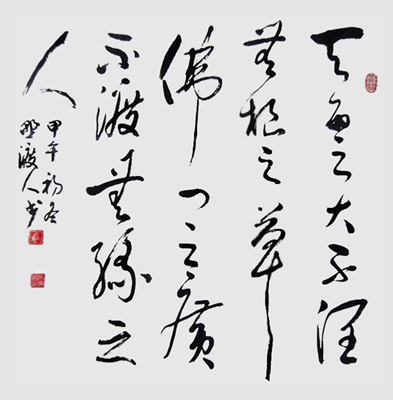 天雨之大不润
無根之草
佛门之廣
不渡無缘之
人
甲午初冬
野渡人书